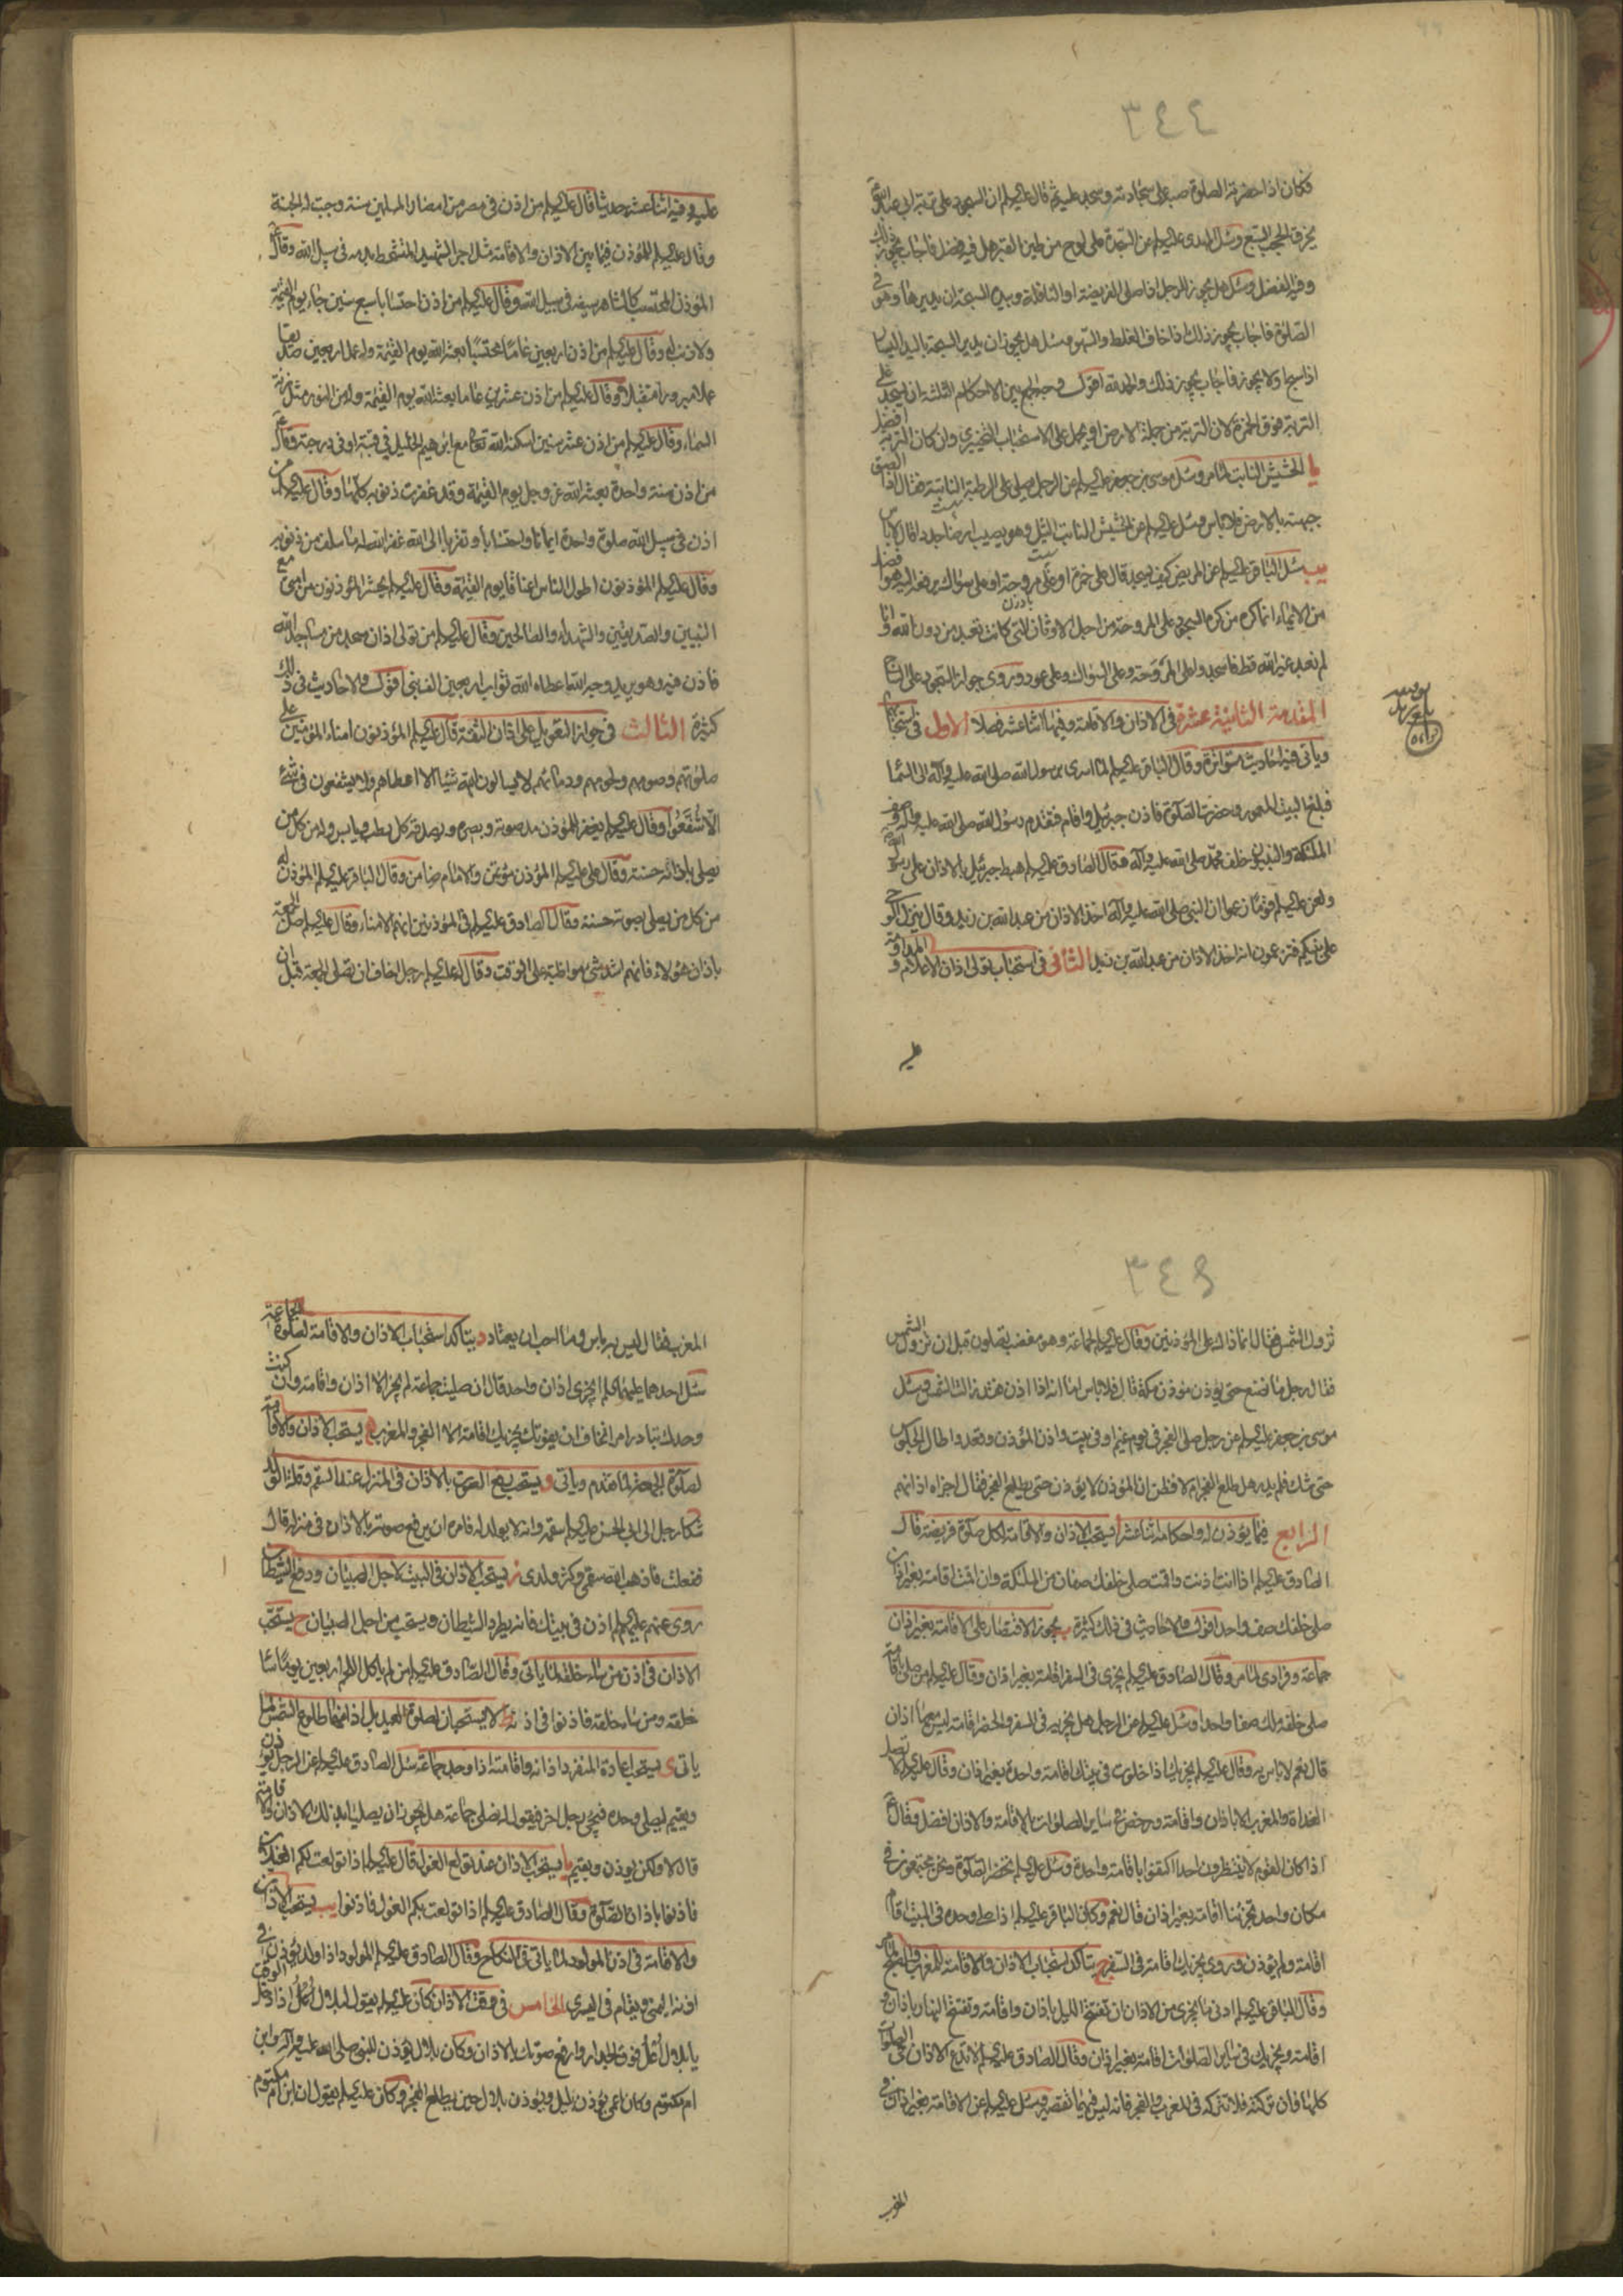 ٣٤٤
فكان اذا حضرته الصلوة صبه على سجادته وسجد عليه ثم قال عليه السلام ان السجود على تربة ابي عبد الله ع
يخرق الحجب السبع وسئل المهدى عليه السلام عن السجدة على لوح من طين القبر هل فيه فضل فاجاب يجوز ذلك
وفيه الفضل وسئل هل يجوز للرجل اذا صلى الفريضة او النافلة وبيده السبحة ان يديرها وهو فى
الصلوة فاجاب يجوز ذلك اذا خاف الغلط والسهو وسئل هل يجوز ان يدير السبحة باليد اليسار
اذا سبح او لا يجوز فاجاب يجوز ذلك والحمد لله اقول
التربة فوق الخمرة لان التربة من جملة الارض او يحمل على الاستحباب التخييرى وان كان التربة افضل
يا الحشيش النابت لما مر وسئل موسى بن جعفر عليه السلام عن الرجل يصلى على الرطبة النابتة فقال اذا الصق
جبهته بالارض فلا باس وسئل عليه السلام عن الحشيش النابت الثيل وهو يصيب ارضا جددا قال لا باس
يب سئل الباقر عليه السلام عن المريض كيف يسجد قال على خمرة او على مروحة او على سواك يرفعه اليه هو افضل
من الايماء انما كره من كره السجود على المروحة من اجل الاوثان التى كانت تعبد من دون الله وانا
لم نعبد غير الله قط فاسجدوا على المروحة وعلى السواك وعلى عود وروى جواز السجود على الساج
المقدمة الثانية عشرة فى الاذان والاقامة وفيها اثنا عشر فصلا الاول فى استحبابها
وياتى فيه احاديث متواترة وقال الباقر عليه السلام لما اسرى برسول الله صلى الله عليه وآله الى السماء
فبلغ البيت المعمور وحضرت الصلوة فاذن جبرئيل واقام فتقدم رسول الله صلى الله عليه وآله وصف
الملئكة والنبيون خلف محمد صلى الله عليه وآله وقال الصادق عليه السلام هبط جبرئيل بالاذان على رسول الله ص
ولعن عليه السلام قوما زعموا ان النبى صلى الله عليه وآله اخذ الاذان من عبد الله بن زيد وقال ينزل الوحى
على نبيكم فتزعمون انه اخذ الاذان من عبد الله بن زيد الثانى فى استحباب تولى اذان الاعلام والمداومة
عليه
عليه وفيه اثنا عشر حديثا قال عليه السلام من اذن فى مصر من امصار المسلمين سنة وجبت له الجنة
وقال عليه السلام للمؤذن فيما بين الاذان والاقامة مثل اجر الشهيد المتشحط بدمه فى سبيل الله وقال ع
المؤذن المحتسب كالشاهر سيفه فى سبيل الله وقال عليه السلام من اذن احتسابا سبع سنين جاء يوم القيمة
ولا ذنب له وقال عليه السلام من اذن اربعين عاما محتسبا بعثه الله يوم القيمة وله عمل اربعين صديقا
عملا مبرورا متقبلا وقال عليه السلام من اذن عشرين عاما بعثه الله يوم القيمة وله من النور مثل زنة
السماء وقال عليه السلام من اذن عشر سنين اسكنه الله تعالى مع ابرهيم الخليل فى قبته او فى درجته وقال ع
من اذن سنة واحدة بعثه الله عز وجل يوم القيمة وقد غفرت ذنوبه كلها وقال عليه السلام من
اذن فى سبيل الله صلوة واحدة ايمانا واحتسابا وتقربا الى الله غفر الله له ما سلف من ذنوبه
وقال عليه السلام المؤذنون اطول الناس اعناقا يوم القيامة وقال عليه السلام يحشر المؤذنون من امتى مع
النبيين والصديقين والشهداء والصالحين وقال عليه السلام من تولى اذان مسجد من مساجد الله
فاذن فيه وهو يريد وجه الله اعطاه الله ثواب اربعين الف نبى اقول والاحاديث فى ذلك
كثيرة الثالث فى جواز التعويل على اذان الثقة قال عليه السلام المؤذنون امناء المؤمنين على
صلوتهم وصومهم ولحومهم ودمائهم لا يسالون الله شيئا الا اعطاهم ولا يشفعون فى شئ
الا شفعوا وقال عليه السلام يغفر للمؤذن مد صوته وبصره ويصدقه كل رطب ويابس وله من كل من
يصلى باذانه حسنة وقال على عليه السلام المؤذن مؤتمن والامام ضامن وقال الباقر عليه السلام المؤذن له
من كل من يصلى بصوته حسنة وقال الصادق عليه السلام فى المؤذنين انهم الامناء وقال عليه السلام صل الجمعة
باذان هؤلاء فانهم اشد شئ مواظبة على الوقت وقال له عليه السلام رجل اخاف ان نصلى الجمعة قبل ان
٣٤٥
تزول الشمس فقال انما ذلك على المؤذنين وقال عليه السلام لجماعة وهو مغضب تصلون قبل ان تزول الشمس
فقال رجل ما نصنع حتى يؤذن مؤذن مكة قال فلا باس اما انه اذا اذن فقد زالت الشمس وسئل
موسى بن جعفر عليه السلام عن رجل صلى الفجر فى يوم غيم او فى بيت واذن المؤذن وقعد واطال الجلوس
حتى شك فلم يدر هل طلع الفجر ام لا فظن ان المؤذن لا يؤذن حتى يطلع الفجر فقال اجزاه اذانهم
الرابع فيما يؤذن له واحكامه اثنا عشر ا يستحب الاذان والاقامة لكل صلوة فريضة قال
الصادق عليه السلام اذا انت اذنت واقمت صلى خلفك صفان من الملئكة وان اقمت اقامة بغير اذان
صلى خلفك صف واحد اقول والاحاديث فى ذلك كثيرة ب يجوز الاقتصار على الاقامة بغير اذان
جماعة وفرادى لما مر وقال الصادق عليه السلام يجزى فى السفر اقامة بغير اذان وقال عليه السلام من صلى باقامة
صلى خلفه ملك صفا واحدا وسئل عليه السلام عن الرجل هل يجزيه فى السفر والحضر اقامة ليس معها اذان
قال نعم لا باس به وقال عليه السلام يجزيك اذا خلوت فى بيتك اقامة واحدة بغير اذان وقال عليه السلام لا تصل
الغداة والمغرب الا باذان واقامة ورخص فى ساير الصلوات بالاقامة والاذان افضل وقال ع
اذا كان القوم لا ينتظرون احدا اكتفوا باقامة واحدة وسئل عليه السلام تحضر الصلوة ونحن مجتمعون فى
مكان واحد تجزينا اقامة بغير اذان قال نعم وكان الباقر عليه السلام اذا صلى وحده فى البيت اقام
اقامة ولم يؤذن وروى يجزيك اقامة فى السفر ج يتاكد استحباب الاذان والاقامة للمغرب والصبح لما مر
وقال الباقر عليه السلام ادنى ما يجزى من الاذان ان تفتتح الليل باذان واقامة وتفتتح النهار باذان و
اقامة ويجزيك فى ساير الصلوات اقامة بغير اذان وقال الصادق عليه السلام لا تدع الاذان فى الصلوات
كلها فان تركته فلا تتركه فى المغرب والفجر فانه ليس فيهما تقصير وسئل عليه السلام عن الاقامة بغير اذان فى
المغرب
المغرب فقال ليس به باس وما احب ان يعتاد د يتاكد استحباب الاذان والاقامة لصلوة الجماعة
سئل احدهما عليهما السلام ايجزى اذان واحد قال ان صليت جماعة لم يجز الا اذان واقامة وان كنت
وحدك تبادر امرا تخاف ان يفوتك يجزيك اقامة الا الفجر والمغرب ه يستحب الاذان والاقامة
لصلوة الجمعة لما تقدم وياتى و يستحب رفع الصوت بالاذان فى المنزل عند السقم وقلة الولد
شكا رجل الى ابى الحسن عليه السلام سقمه وانه لا يولد له فامره ان يرفع صوته بالاذان فى منزله قال
ففعلت فاذهب الله سقمى وكثر ولدى ز يستحب الاذان فى البيت لاجل الصبيان ودفع الشيطان
روى عنهم عليهم السلام اذن فى بيتك فانه يطرد الشيطان ويستحب من اجل الصبيان ح يستحب
الاذان فى اذن من ساء خلقه لما ياتى وقال الصادق عليه السلام من لم ياكل اللحم اربعين يوما ساء
خلقه ومن ساء خلقه فاذنوا فى اذنه ط لا يستحبان لصلوة العيد بل اذانهما طلوع الشمس لما
ياتى ى يستحب اعادة المنفرد اذانه واقامته اذا وجد جماعة سئل الصادق عليه السلام عن الرجل يؤذن
ويقيم ليصلى وحده فيجئ رجل اخر فيقول له نصلى جماعة هل يجوز ان يصليا بذلك الاذان والاقامة
قال لا ولكن يؤذن ويقيم يا يستحب الاذان عند تولع الغول قال عليه السلام اذا تولعت لكم الغيلان
فاذنوا باذان الصلوة وقال الصادق عليه السلام اذا تولعت بكم الغول فاذنوا يب يستحب الاذان
والاقامة فى اذن المولود لما ياتى فى النكاح وقال الصادق عليه السلام المولود اذا ولد يؤذن فى
اذنه اليمنى ويقام فى اليسرى الخامس فى الاذان كان عليه السلام يقول لبلال اذا دخل الوقت
يا بلال اعل فوق الجدار وارفع صوتك بالاذان وكان بلال يؤذن للنبى صلى الله عليه وآله وابن
ام مكتوم وكان اعمى يؤذن بليل ويؤذن بلال حين يطلع الفجر وكان عليه السلام يقول ان ابن ام مكتوم